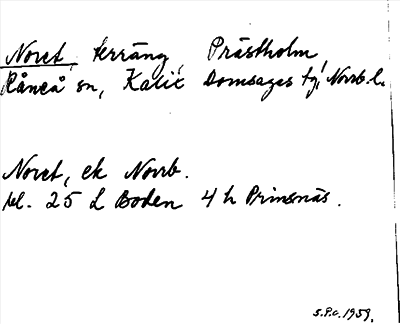 Noret, terräng, Prästholm,
Råneå sn, Kalix Domsagas tg, Norrb. l.
Noret, ek Norrb.
bl. 25 L Boden 4 h Prinsnäs.
S.P.O. 1959.